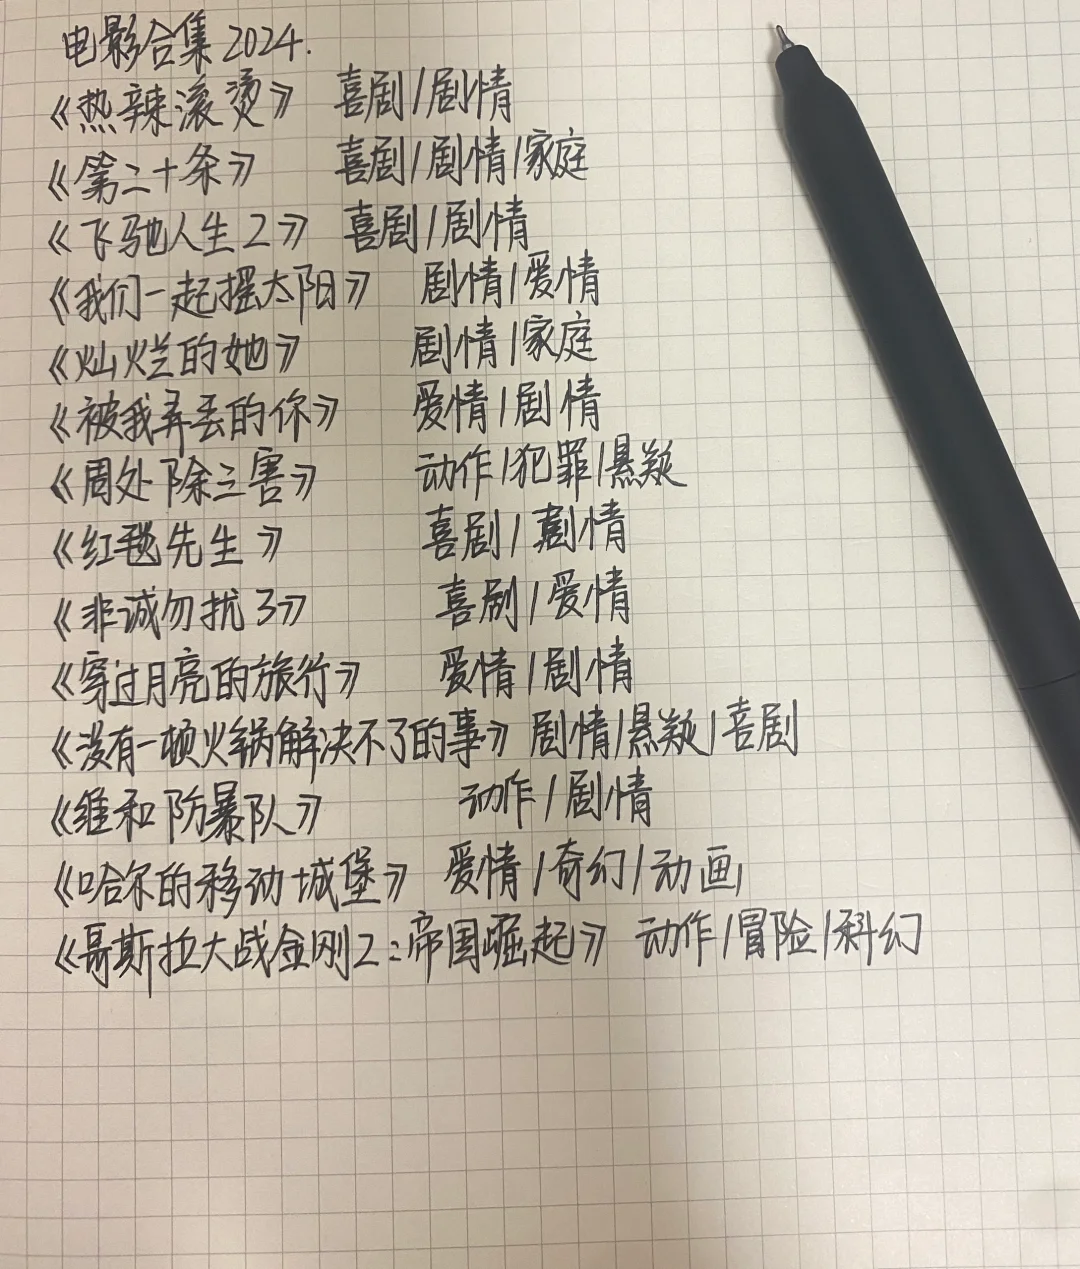 电影合集2024.
《热辣滚烫》 喜剧/剧情
《第二十条》 喜剧/剧情/家庭
《飞驰人生2》 喜剧/剧情
《我们一起摇太阳》 剧情/爱情
《灿烂的她》 剧情/家庭
《被我弄丢的你》 爱情/剧情
《周处除三害》 动作/犯罪/悬疑
《红毯先生》 喜剧/剧情
《非诚勿扰3》 喜剧/爱情
《穿过月亮的旅行》 爱情/剧情
《没有一顿火锅解决不了的事》 剧情/悬疑/喜剧
《维和防暴队》 动作/剧情
《哈尔的移动城堡》 爱情/奇幻/动画
《哥斯拉大战金刚2:帝国崛起》 动作/冒险/科幻